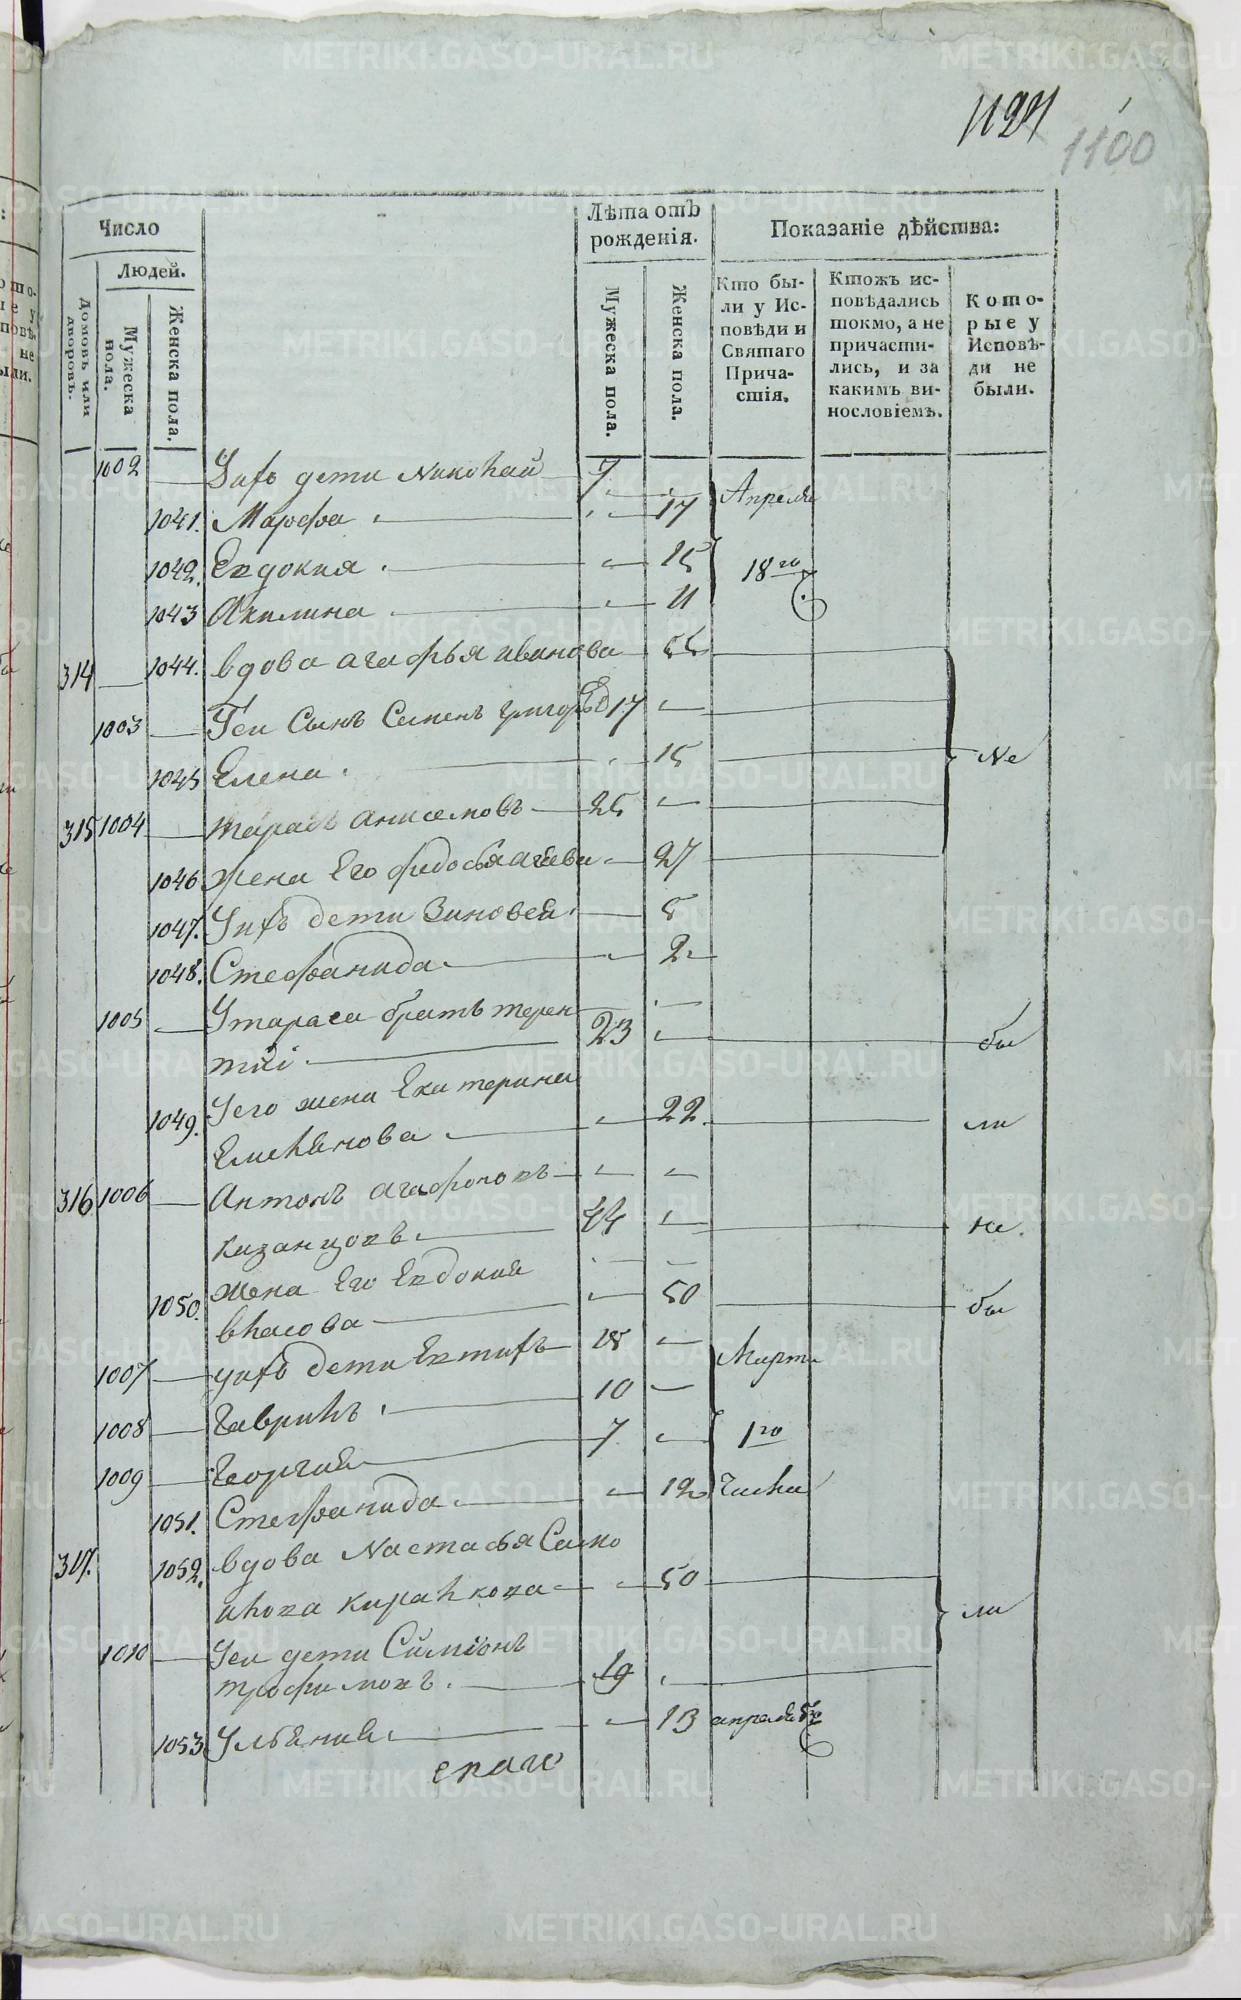 1124
1100
Число
Людей.
Домовъ или дворовъ.
Мужеска пола.
Женска пола.
Лѣта отъ рожденія.
Мужеска пола.
Женска пола.
Показаніе дѣйства:
Кто бы-
ли у Ис-
повѣди и
Святаго
Прича-
стія.
Ктожъ ис-
повѣдались
токмо, а не
причасти-
лись, и за
какимъ ви-
нословіемъ.
Кото-
рые у
Исповѣ-
ди не
были.
1002 Унхъ дети Николай 7 Апреля
1041. Марфа 17
1042. Евдокия 15 18го
1043 Акилина 11
314 1044. вдова агафья иванова 55
1003 Уеи Сынъ Семенъ григорьевъ 17
1045 Елена 15 Не
315 1004 тарасъ анисемовъ 25
1046 жена Его федосья 27
1047. Унхъ дети Зиновея 5
1048. Стефанида 2
1005 Утараса братъ терен
тий 23 бы
1049. Уего жена Екатерина
Емельянова 22 ли
316 1006 Антонъ агафоновъ
казанцовъ 44 не
1050. жена Его Евдокия
власова 50 бы
1007 унхъ дети Евтихъ 18 Марта
1008 Гаврилъ 10
1009 Георгий 7 1го
1051. Стефанида 12 Числа
317. 1052. вдова Настасья Само
илова Киралкова 50 ли
1010 Уеи дети Симионъ
трофимовъ 19
1053 Ульяния 13 апреля